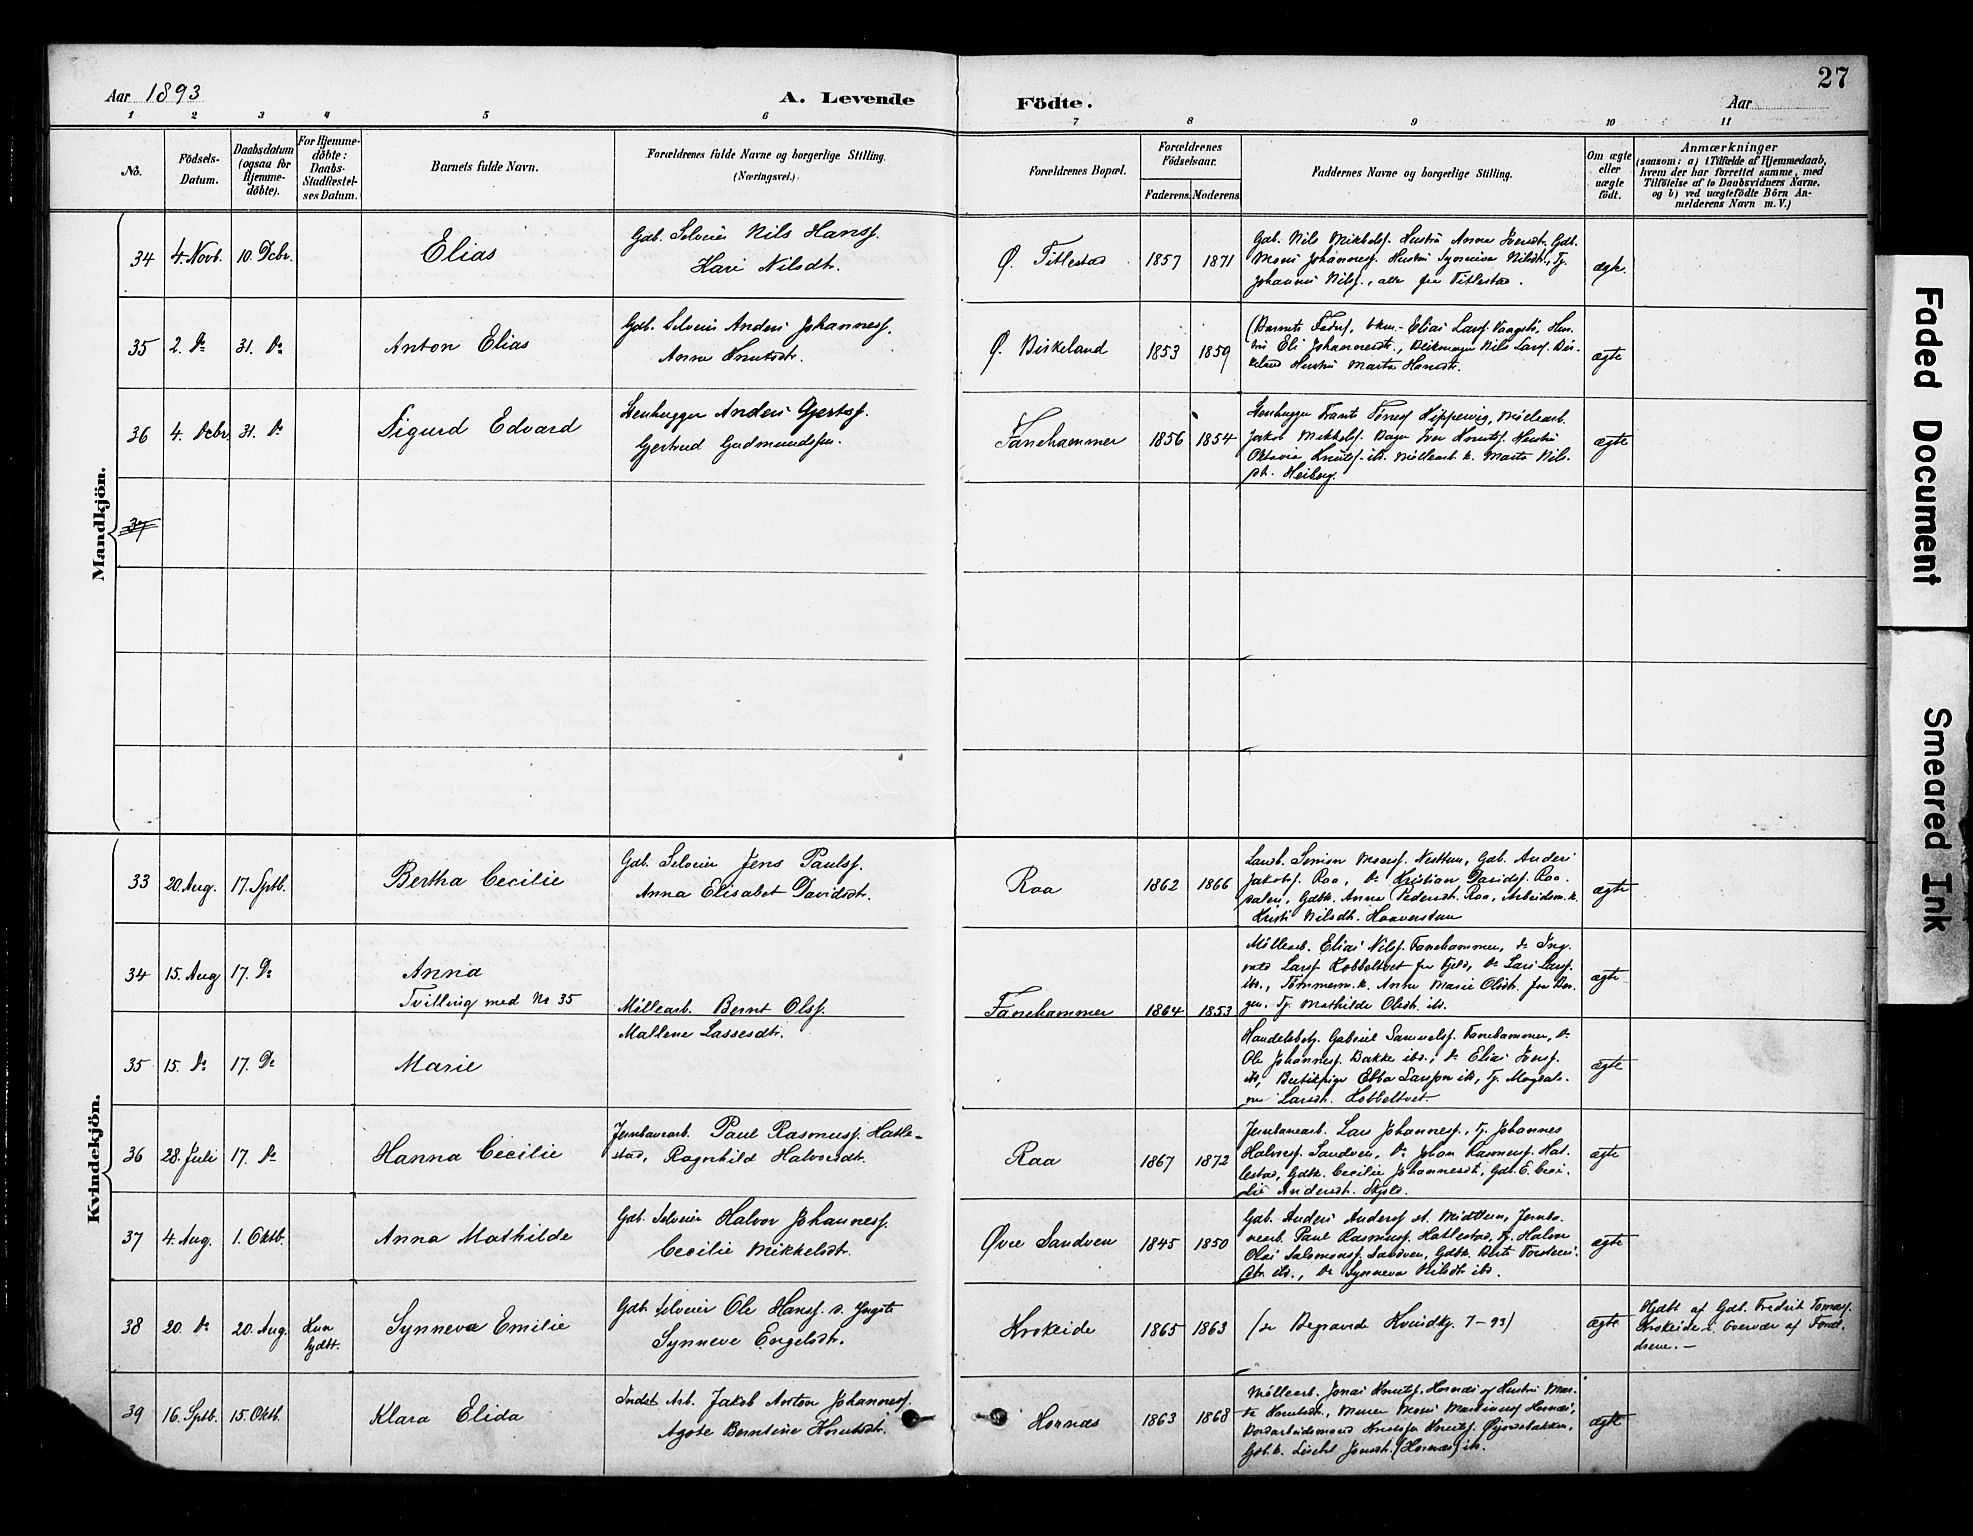 27
Aar 1893
A. Levende
Födte.
Aar
1 2 3 4 5 6 7 8 9 10 11
No.
Födsels-
Datum.
Daabsdatum
(ogsaa for
Hjemme-
döbte).
For Hjemme-
döbte:
Daabs-
Stadfæstel-
ses Datum.
Barnets fulde Navn.
Forældrenes fulde Navne og borgerlige Stilling.
(Næringsvei.)
Forældrenes Bopæl.
Forældrenes
Födselsaar.
Faderens. Moderens.
Faddernes Navne og borgerlige Stilling.
Om ægte
eller
uægte
födt.
Anmærkninger
(saasom: a) i Tilfælde af Hjemmedaab,
hvem der har forrettet samme, med
Tilföielse af to Daabsvidners Navne,
og b) ved uægtefödte Börn An-
melderens Navn m. V.)
Mandkjön.
34 4. Novb. 10. Dcbr. Elias
Gdb. Selveier Nils Hansf.
Kari Nilsdtr.
Ø. Titlestad 1857 1871
Gdb. Nils Mikkelsf. Hustru Anna Iversdtr. Gdb.
Mons Johannesf. Hustru Synneva Nilsdtr., Tj.
Johannes Nilsf., alle fra Titlestad.
ægte
35 2. Do 31. Do Anton Elias
Gdb. Selveier Anders Johannesf.
Anna Knutsdtr.
Ø. Birkeland 1853 1859
(Barnets Fader, Elias Larsf. Vaagsbö, Hus-
tru Eli Johannesdtr., Nils Larsf. Bir-
keland Hustru Marta Hansdtr.
ægte
36 4. Dcbr. 31. Do Sigurd Edvard
Stenhugger Anders Gjertsf.
Gjertrud Gudmundsen.
Fanehammer 1856 1854
Stenhugger Frants Tönnesf. Möllearb.
Jakob Mikkelsf. Bager Iver Knutsf. Hustru
Oktavia Knutsf. ibd. Möllearb. k. Marta Nils-
dtr. Heiberg.
ægte
37
Kvindekjön.
33 20. Aug. 17. Sptb. Bertha Cecilie
Gdb. Selveier Jens Paulsf.
Anna Elisabet Davidsdtr.
Raa 1862 1866
Landb. Simon Monsf. Nesttun, Gdb. Anders
Jakobsf. Raa, Do Kristian Davidsf. Raa-
dalen, Gdbk. Anna Pedersdtr. Raa, Arbeidsm. k.
Kristi Nilsdtr. Haaverstun
ægte
34 15. Aug 17. Do Anna
Tvilling med No 35
Möllearb. Bernt Olsf.
Mallene Lassesdtr.
Fanehammer 1864 1853
Möllearb. Elias Nilsf. Fanehammer, Do Ing-
vald Larsf. Kobbeltvet fra Fjeld, Do Lars Larsf.
ibd., Tömmerm. k. Anna Marie Olsdtr. fra Ber-
gen, Tj. Mathilde Olsdtr. ibd.
ægte
35 15. Do 17. Do Marie
Handelsbetj. Gabriel Samuelsf. Fanehammer, Do
Ole Johannesf. Bakke ibd., Do Elias Jensf.
ibd, Butikpige Ebba Larsson ibd, Tj. Magdale-
ne Larsdtr. Kobbeltvet.
ægte
36 28. Juli 17. Do Hanna Cecilie
Jernbanearb. Paul Rasmusf. Hatle-
stad, Ragnhild Halvorsdtr.
Raa 1867 1872
Jernbanearb. Lars Johannesf., Tj. Johannes
Halvorsf. Sandven, Do Johan Rasmusf. Hat-
lestad, Gdbk. Cecilie Johannesdtr., Gdb. E. Ceci-
lie Andersdtr. Skjold.
ægte
37 4. Aug. 1. Oktb. Anna Mathilde
Gdb. Selveier Halvor Johannesf.
Cecilie Mikkelsdtr.
Övre Sandven 1845 1850
Gdb. Anders Andersf. st. Midttun, Jernba-
nearb. Paul Rasmusf. Hatlestad, Tj. Halvor
Olai Salomonsf. Sandven, Gdbk. Berte Torsteins-
dtr. ibd., Do Synneva Nilsdtr. ibd.
ægte
38 20. Do 20. Aug. Kun
hjdbt. Synneva Emilie
Gdb. Selveier Ole Hansf. d. Yngste
Synneve Engelsdtr.
Krokeide 1865 1863
(se Begravede Kvindkj. 7-93)
ægte
Hjdbt af Gdb. Fredrik Tomasf.
Krokeide i Overvær af Foræl-
drene. -
39 16. Sptb. 15. Oktb. Klara Elida
Indst. Arb. Jakob Anton Johannesf.
Agote Berntine Knutsdtr.
Hornæs 1863 1868
Möllearb. Jonas Knutsf. Hornæs og Hustru Mar-
ta Knutsdtr., Murer Mons Martinusf. Hornæs,
Jordarbeidsmand Kristofer Knutsf.
Gdb. k. Lisebet Jonsdtr. (Hornæs) ibd.
ægte
Faded Document
Smeared Ink